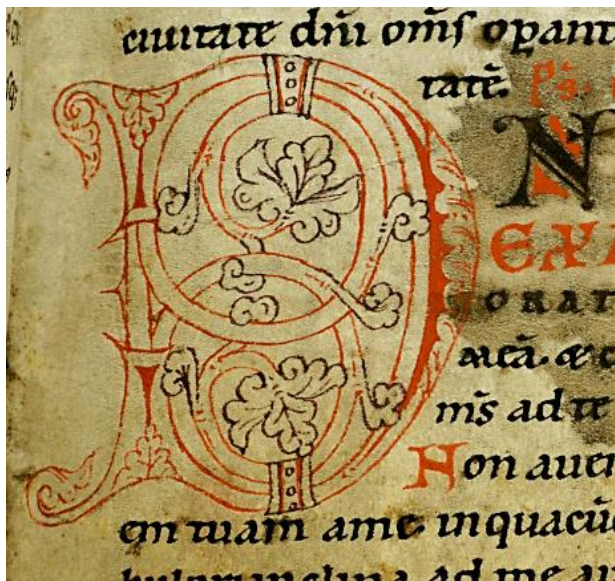 ciuitate dñi om̃s oꝑant
tatẽ. p̃s.
D N E
EXA
ORAT
meã. &
m̃s ad te
Non auer
em tuam a me in quacũ
ad me au